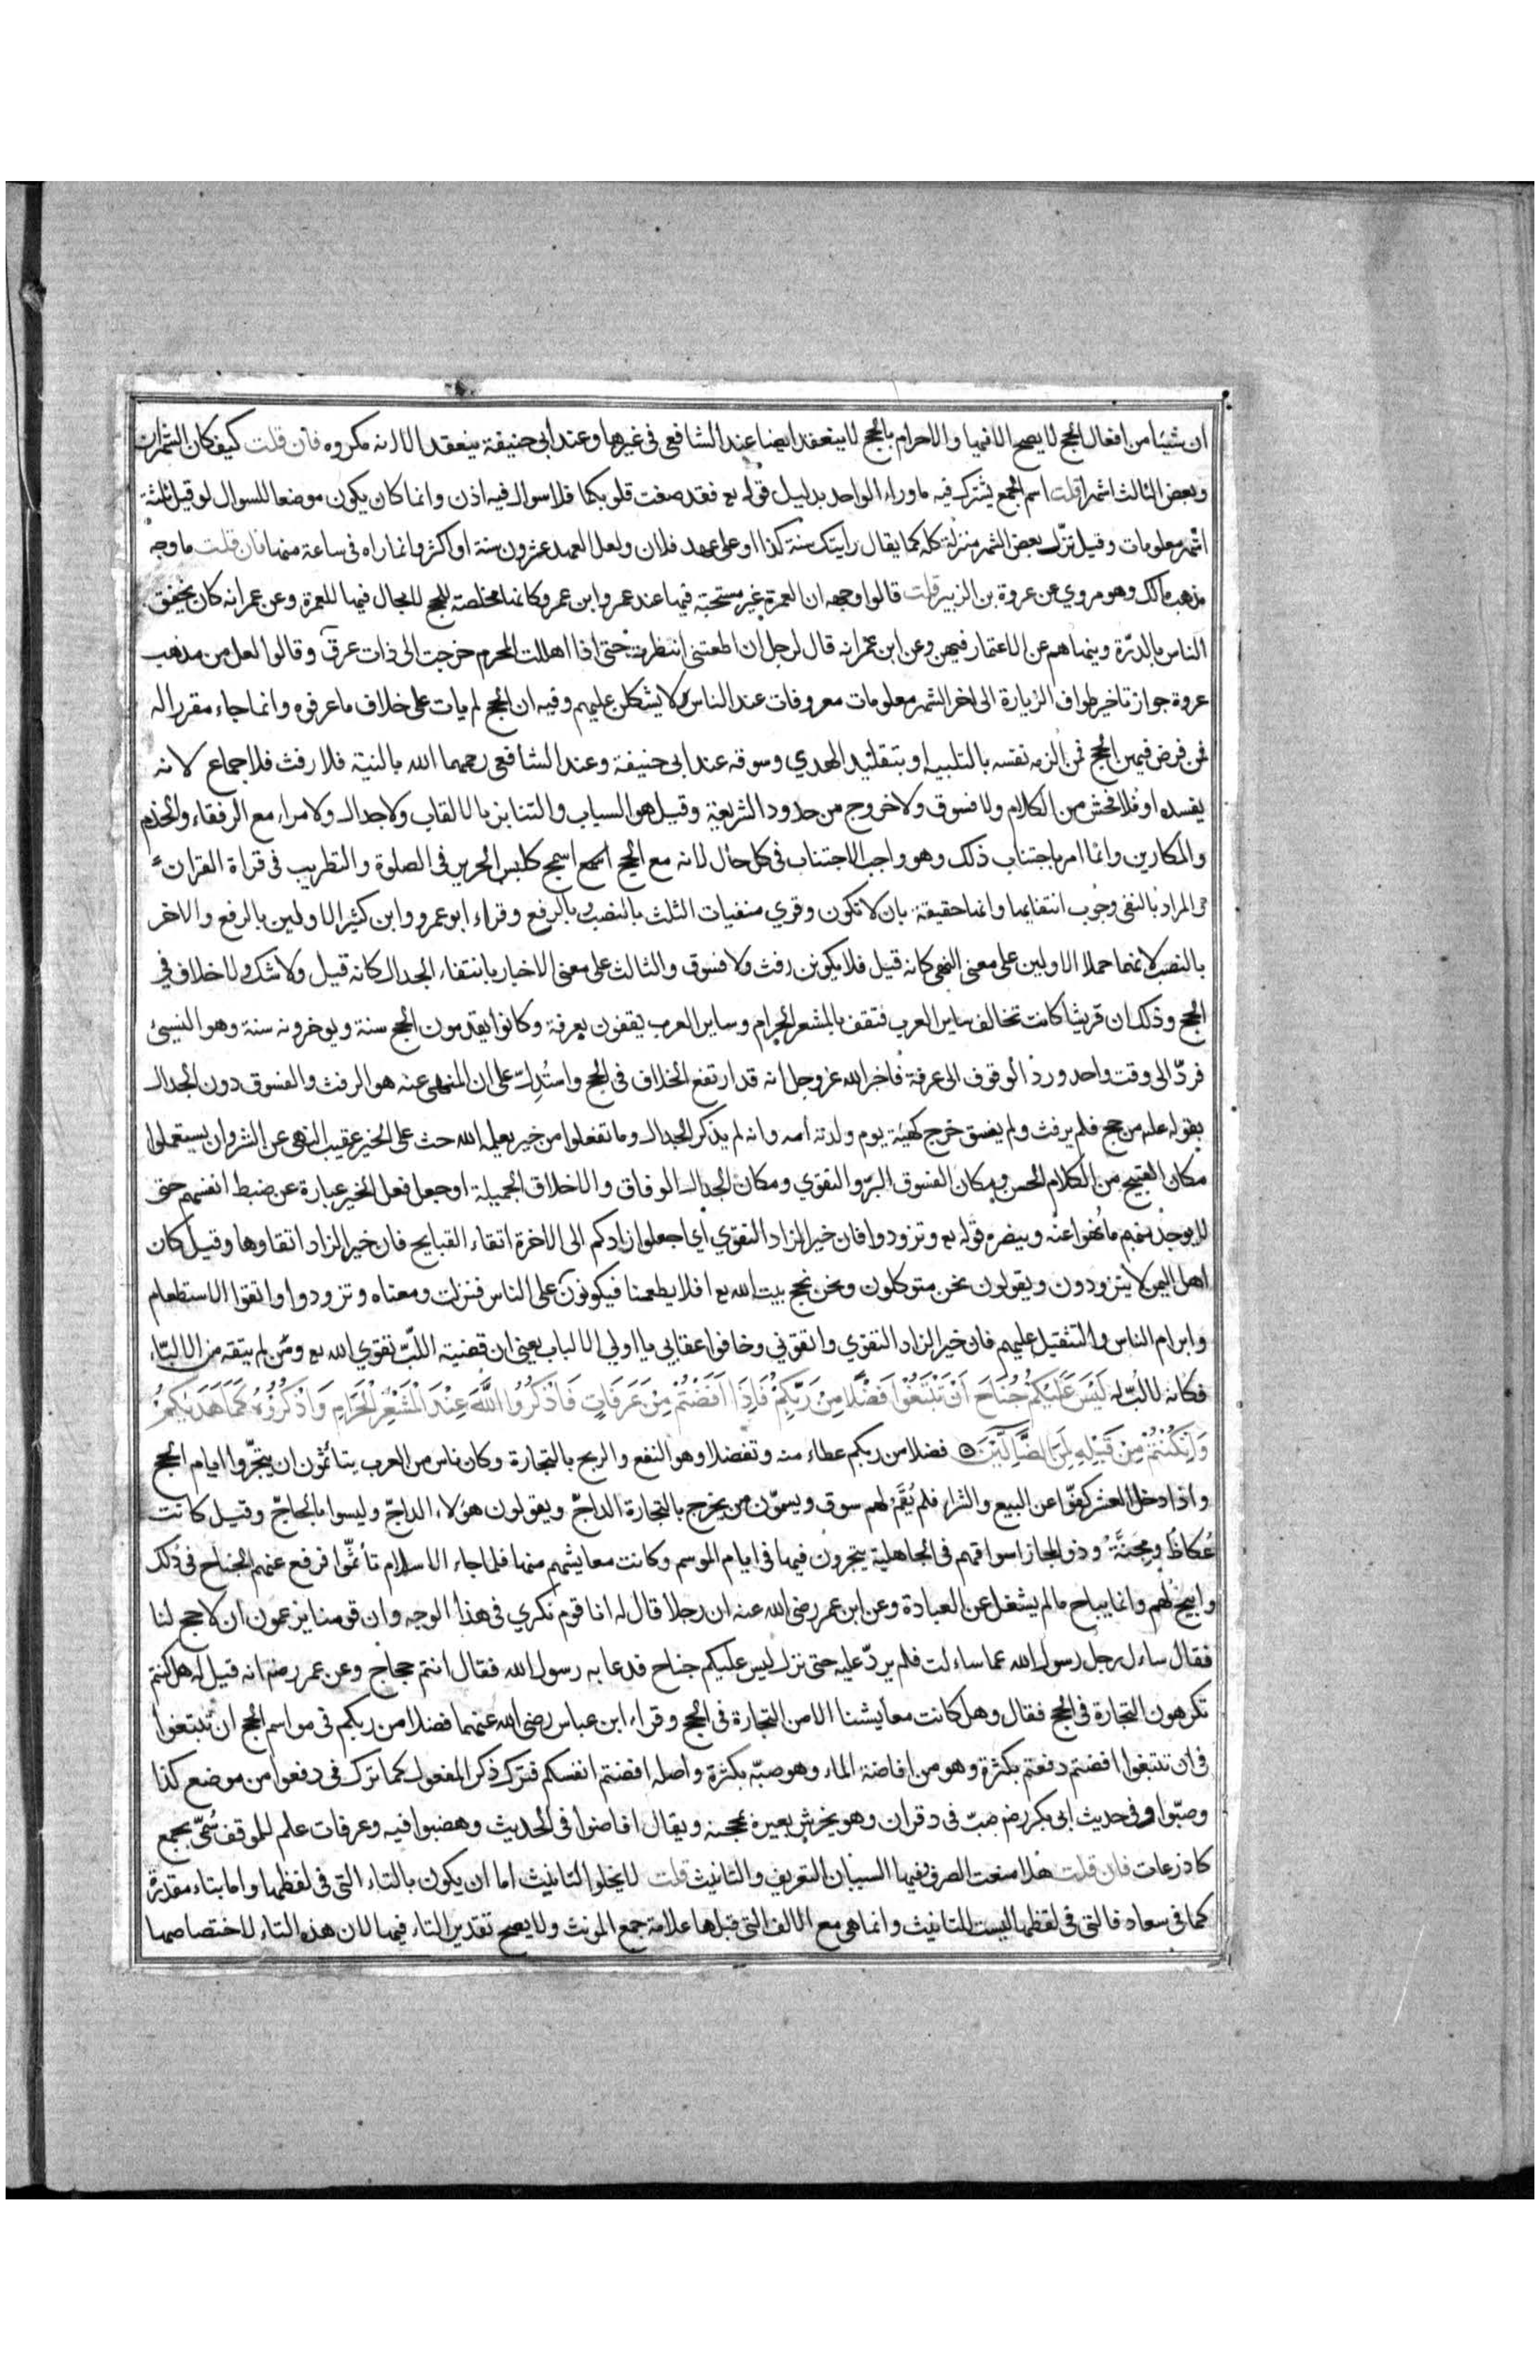 ان شيئا من افعال الحج لا يصح الا فيها والاحرام بالحج لا ينعقد ايضا عند الشافعي في غيرها وعند ابي حنيفة ينعقد الا انه مكروه فان قلت كيف كان الشهران
وبعض الثالث اشهرا قلت اسم الجمع يشترك فيه ما وراء الواحد بدليل قوله تع فقد صغت قلوبكما فلا سوال فيه اذن وانما كان يكون موضعا للسوال لو قيل ثلثة
اشهر معلومات وقيل نزّل بعض الشهر منزلة كله كما يقال رايتك سنة كذا او على عهد فلان ولعل العهد عشرون سنة او اكثر وانما راه في ساعة منها فان قلت ما وجه
مذهب مالك وهو مروي عن عروة بن الزبير قلت قالوا وجهه ان العمرة غير مستحبة فيها عند عمر وابن عمر وكانها مخلصة للحج لا مجال فيها للعمرة وعن عمر انه كان يخفق
الناس بالدرّة وينهاهم عن الاعتمار فيهن وعن ابن عمر انه قال لرجل ان اطعتني انتظرت حتى اذا اهللت المحرم خرجت الى ذات عرق وقالوا لعل من مذهب
عروة جواز تاخير طواف الزيارة الى اخر الشهر معلومات معروفات عند الناس لا يشكلن عليهم وفيه ان الحج لم يات على خلاف ما عرفوه وانما جاء مقررا له
فمن فرض فيهن الحج فمن الزمه نفسه بالتلبية او بتقليد الهدي وسوقه عند ابي حنيفة وعند الشافعي رحمهما الله بالنية فلا رفث فلا جماع لانه
يفسده او فلا فحش من الكلام ولا فسوق ولا خروج من حدود الشريعة وقيل هو السباب والتنابز بالالقاب ولا جدال ولا مراء مع الرفقاء والخدم
والمكارين وانما امر باجتناب ذلك وهو واجب الاجتناب في كل حال لانه مع الحج اسمج كلبس الحرير في الصلوة والتطريب في قراة القران
والمراد بالنفي وجوب انتفايها وانها حقيقة بان لا تكون وقري منفيات الثلث بالنصب وبالرفع وقراء ابو عمرو وابن كثير الاولين بالرفع والاخر
بالنصب لانهما حملا الاولين على معنى النهي كانه قيل فلا يكونن رفث ولا فسوق والثالث على معنى الاخبار بانتفاء الجدال كانه قيل ولا شك ولا خلاف في
الحج وذلك ان قريشا كانت تخالف ساير العرب فتقف بالمشعر الحرام وساير العرب يقفون بعرفة وكانوا يقدمون الحج سنة ويوخرونه سنة وهو النسيئ
فردّ الى وقت واحد وردّ الوقوف الى عرفة فاخبر الله عز وجل انه قد ارتفع الخلاف في الحج واستُدِلّ على ان المنهي عنه هو الرفث والفسوق دون الجدال
بقوله علم من حج فلم يرفث ولم يفسق خرج كهيئة يوم ولدته امه وانه لم يذكر الجدال وما تفعلوا من خير يعلمه الله حث على الخير عقيب النهي عن الشر وان يستعملوا
مكان القبيح من الكلام الحسن ومكان الفسوق البرّ والتقوي ومكان الجدال الوفاق والاخلاق الجميلة او جعل فعل الخير عبارة عن ضبط انفسهم حتى
لا يوجد منهم ما نهوا عنه وينصره قوله تع وتزودوا فان خير الزاد التقوي اي اجعلوا زادكم الى الاخرة اتقاء القبايح فان خير الزاد اتقاوها وقيل كان
اهل اليمن لا يتزودون ويقولون نحن متوكلون ونحن نحج بيت الله تع افلا يطعمنا فيكونون على الناس فنزلت ومعناه وتزودوا واتقوا الاستطعام
وابرام الناس والتثقيل عليهم فان خير الزاد التقوي واتقوني وخافوا عقابي يا اولي الالباب يعني ان قضية اللبّ تقوي الله تع ومن لم يتقه من الالبّاء
فكانه لا لبّ له لَيْسَ عَلَيْكُمْ جُنَاحٌ اَنْ تَبْتَغُوا فَضْلًا مِنْ رَبِّكُمْ فَاِذَا اَفَضْتُمْ مِنْ عَرَفَاتٍ فَاذْكُرُوا اللّٰهَ عِنْدَ الْمَشْعَرِ الْحَرَامِ وَاذْكُرُوهُ كَمَا هَدٰيكُمْ
وَاِنْ كُنْتُمْ مِنْ قَبْلِهِ لَمِنَ الضَّالِّينَ فضلا من ربكم عطاء منه وتفضلا وهو النفع والربح بالتجارة وكان ناس من العرب يتاثّمون ان يتجّروا ايام الحج
واذا دخل العشر كفّوا عن البيع والشرا فلم يُقَم لهم سوق ويسمّون من يخرج بالتجارة الداجّ ويقولون هولاء الداجّ وليسوا بالحاجّ وقيل كانت
عُكاظ ومِجَنَّة وذو المجاز اسواقهم في الجاهلية يتجرون فيها في ايام الموسم وكانت معايشهم منها فلما جاء الاسلام تأثّموا فرفع عنهم الجناح في ذلك
وابيح لهم وانما يباح ما لم يشغل عن العبادة وعن ابن عمر رضى الله عنه ان رجلا قال له انا قوم نكري في هذا الوجه وان قومنا يزعمون ان لا حج لنا
فقال ساءل رجل رسول الله عما ساءلت فلم يردّ عليه حتى نزل ليس عليكم جناح فدعا به رسول الله فقال انتم حجاج وعن عمر رضه انه قيل له هل كنتم
تكرهون التجارة في الحج فقال وهل كانت معايشنا الا من التجارة في الحج وقراء ابن عباس رضى الله عنهما فضلا من ربكم في مواسم الحج ان تبتغوا
في ان تبتغوا افضتم دفعتم بكثرة وهو من افاضة الماء وهو صبّه بكثرة واصله افضتم انفسكم فترك ذكر المفعول كما ترك في دفعوا من موضع كذا
وصبّوا وفي حديث ابي بكر رضه صبّ في دقران وهو يخرش بعيره بمحجنه ويقال افاضوا في الحديث وهضبوا فيه وعرفات علم للموقف سُمّي بجمع
كاذرعات فان قلت هلا منعت الصرف فيها السببان التعريف والتانيث قلت لا يخلوا التانيث اما ان يكون بالتاء التي في لفظها واما بتاء مقدرة
كما في سعاد فالتي في لفظها ليست للتانيث وانما هي مع الالف التي قبلها علامة جمع المونث ولا يصح تقدير التاء فيها لان هذه التاء لاختصاصها